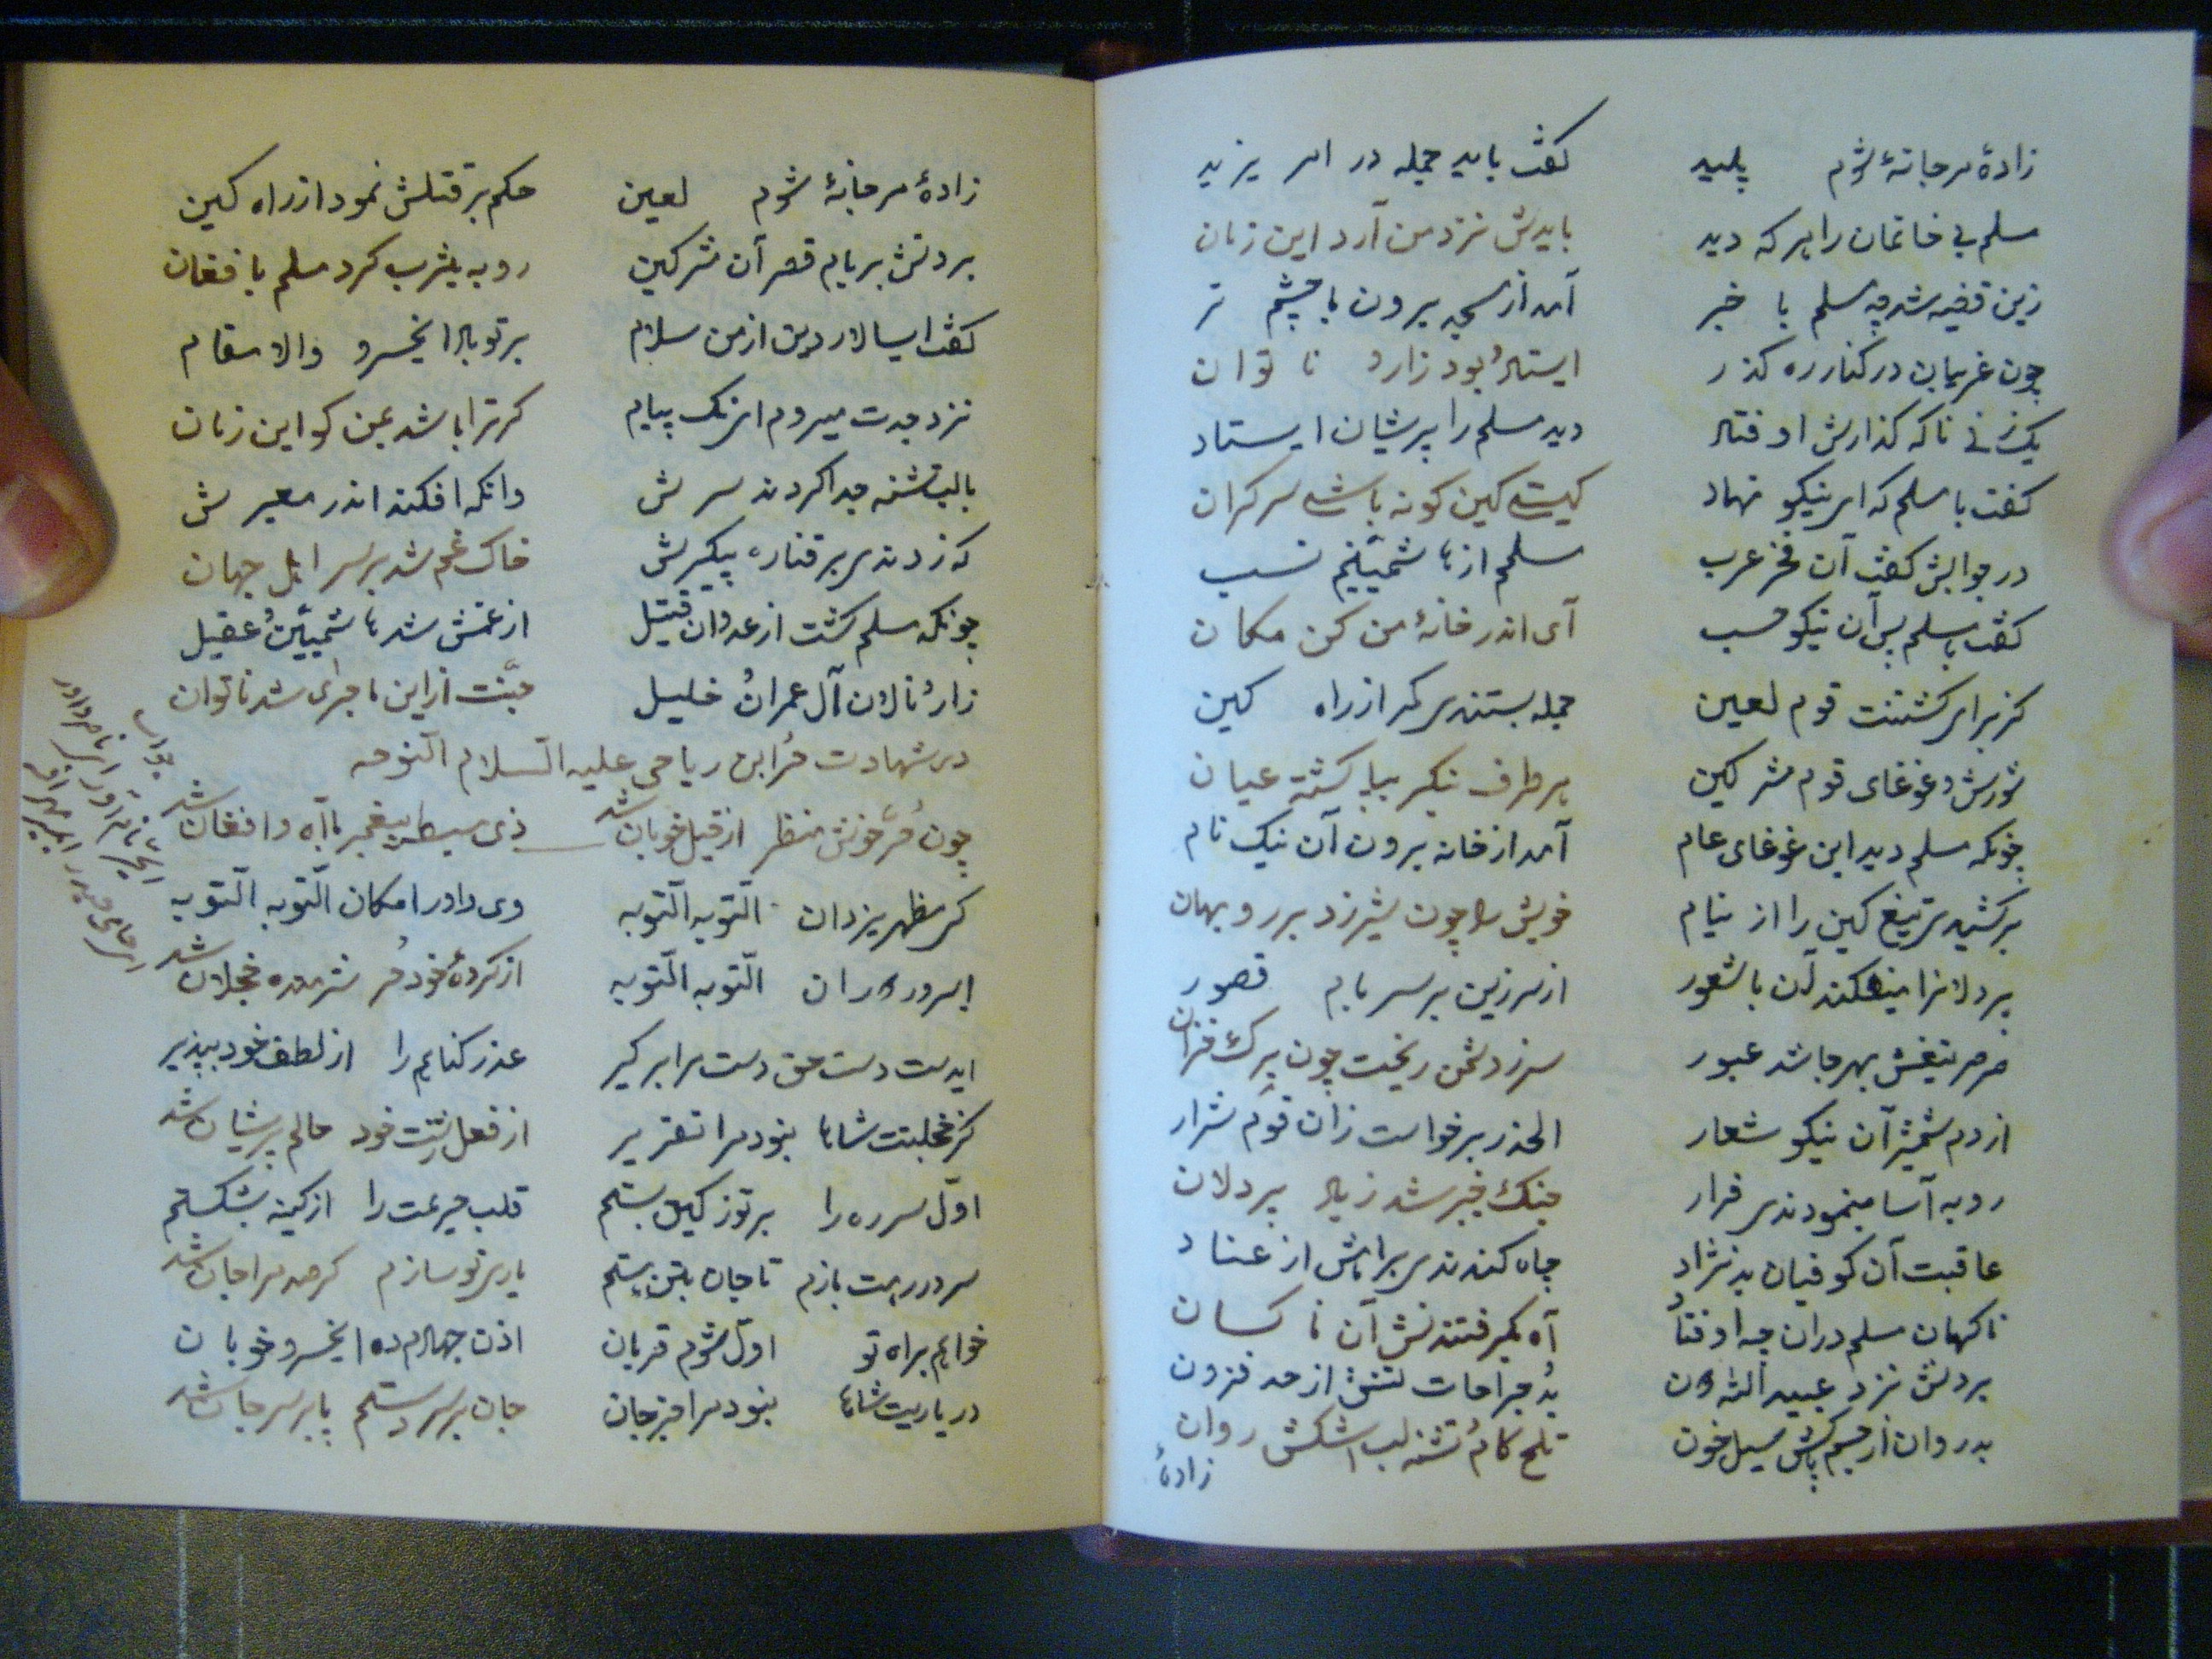 زادهٔ مرجانهٔ شوم پلید گفت باید جمله در امر یزید
مسلم بی خانمان را هر که دید بایدش نزد من آرد این زمان
زین قضیه شد چه مسلم با خبر آمد از مسجد برون با چشم تر
چون غریبان در کنار ره گذر ایستاده بود زار و ناتوان
یک زنی ناگه گذارش اوفتاد دید مسلم را پریشان ایستاد
گفت با مسلم که ای نیکو نهاد کیستی کین گونه باشی سرگران
در جوابش گفت آن فخر عرب مسلمم از هاشمیینم نسب
گفت با مسلم پس آن نیکو حسب آی اندر خانهٔ من کن مکان
کز برای کشتنت قوم لعین جمله بستندی کمر از راه کین
شورش و غوغای قوم مشرکین هر طرف بنگر بپا گشته عیان
چونکه مسلم دید این غوغای عام آمد از خانه برون آن نیک نام
برکشید تیغ کین را از نیام خویش را چون شیر زد بر روبهان
پردلانرا میفکند آن باشعور از سر زین بر سر بام قصور
صرصر تیغش بهر جا شد عبور سر ز دشمن ریخت چون برگ خزان
از دم شمشیر آن نیکو شعار الحذر برخواست زان قوم شرار
روبه آسا مینمودندی فرار جنگ خیبر شد ز یاد پردلان
عاقبت آن کوفیان بد نژاد چاه کندندی برایش از عناد
ناگهان مسلم در آن چه اوفتاد آه بگرفتندش آن ناکسان
بردنش نزد عبید الله دون بد جراحات تنش از حد فزون
بد روان از جسم پاکش سیل خون تلخ کام و تشنه لب اشکش روان
زادهٔ
زادهٔ مرجانهٔ شوم لعین حکم بر قتلش نمود از راه کین
بردنش بر بام قصر آن مشرکین رو به یثرب کرد مسلم با فغان
گفت ای سالار دین از من سلام بر تو باد ایخسرو والا مقام
نزد جدت میروم اینک پیام گر ترا باشد بمن گو این زمان
با لب تشنه جدا کردند سرش وانگه افکند اندر معبرش
که زدندی بر قناره پیکرش خاک غم شد بر سر اهل جهان
چونکه مسلم گشت از عدوان قتیل از غمش شد هاشمیین و عقیل
زار و نالان آل عمران و خلیل جنّت از این ماجرای شد ناتوان
در شهادت حُر ابن ریاحی علیه السّلام النوحه
چون حُرّ خونین منظر از خیل خوبان شد ذی سبط پیغمبر با آه و افغان شد
کی مظهر یزدان التّوبه التّوبه وی داور امکان التّوبه التّوبه
ای سرور دوران التّوبه التّوبه از کردهٔ خود حُر شرمنده خجلان شد
ایدست دست حق دست مرا برگیر عذر گناهم را از لطف خود بپذیر
کز خجلتت شاها نبود مرا تقریر از فعل زشت خود حالم پریشان شد
اوّل سر ره را بر تو ز کین بستم قلب حریمت را از کینه بشکستم
سر در رهت بازم تا جان بتن هستم یاری تو سازم گر صد مرا جان شد
خواهم براه تو اوّل شوم قربان اذن جهادم ده ایخسرو خوبان
در یاریت شاها نبود مرا جز جان جان بر سر دستم پا بر سر جان شد